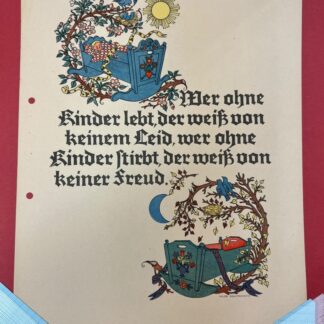 Wer ohne
Kinder lebt, der weiß von
keinem Leid, wer ohne
Kinder stirbt, der weiß von
keiner Freud.